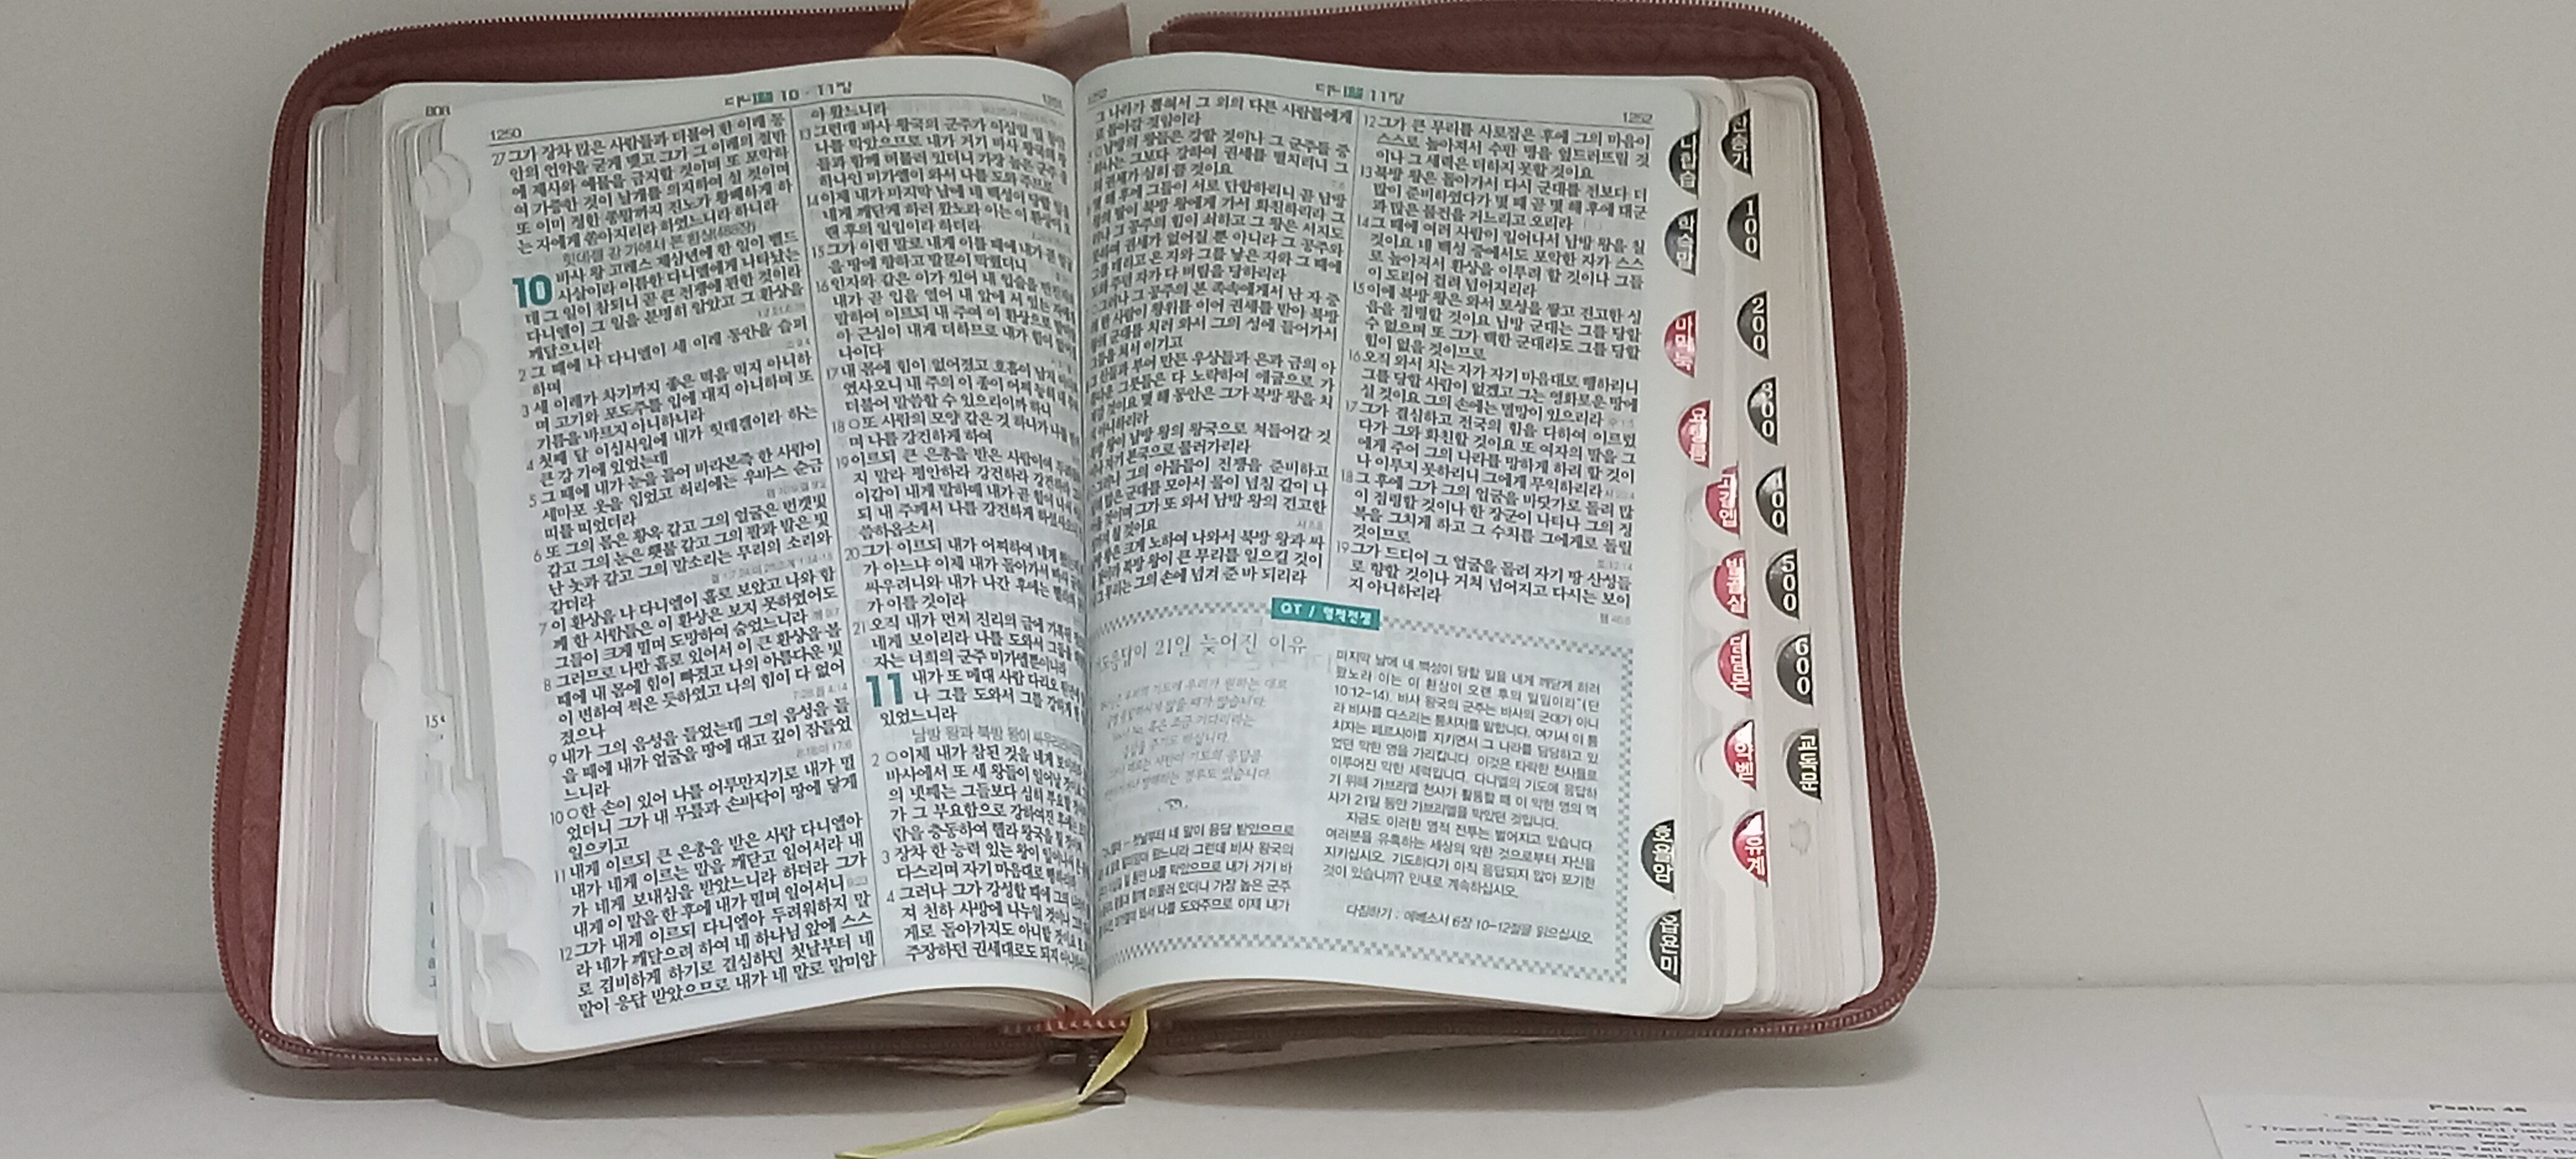 다니엘 10 - 11장
1250
27 그가 장차 많은 사람들과 더불어 한 이레 동
안의 언약을 굳게 맺고 그가 그 이레의 절반
에 제사와 예물을 금지할 것이며 또 포악하
여 가증한 것이 날개를 의지하여 설 것이며
또 이미 정한 종말까지 진노가 황폐하게 하
는 자에게 쏟아지리라 하였느니라 하니라
힛데겔 강 가에서 본 환상
10 바사 왕 고레스 제삼년에 한 일이 벨드
사살이라 이름한 다니엘에게 나타났는
데 그 일이 참되니 곧 큰 전쟁에 관한 것이라
다니엘이 그 일을 분명히 알았고 그 환상을
깨달으니라
2 그 때에 나 다니엘이 세 이레 동안을 슬퍼
하며
3 세 이레가 차기까지 좋은 떡을 먹지 아니하
며 고기와 포도주를 입에 대지 아니하며 또
기름을 바르지 아니하니라
4 첫째 달 이십사일에 내가 힛데겔이라 하는
큰 강 가에 있었는데
5 그 때에 내가 눈을 들어 바라본즉 한 사람이
세마포 옷을 입었고 허리에는 우바스 순금
띠를 띠었더라
6 또 그의 몸은 황옥 같고 그의 얼굴은 번갯빛
같고 그의 눈은 횃불 같고 그의 팔과 발은 빛
난 놋과 같고 그의 말소리는 무리의 소리와
같더라
7 이 환상을 나 다니엘이 홀로 보았고 나와 함
께 한 사람들은 이 환상은 보지 못하였어도
그들이 크게 떨며 도망하여 숨었느니라
8 그러므로 나만 홀로 있어서 이 큰 환상을 볼
때에 내 몸에 힘이 빠졌고 나의 아름다운 빛
이 변하여 썩은 듯하였고 나의 힘이 다 없어
졌으나
9 내가 그의 음성을 들었는데 그의 음성을 들
을 때에 내가 얼굴을 땅에 대고 깊이 잠들었
느니라
10 ○한 손이 있어 나를 어루만지기로 내가 떨
었더니 그가 내 무릎과 손바닥이 땅에 닿게
일으키고
11 내게 이르되 큰 은총을 받은 사람 다니엘아
내가 네게 이르는 말을 깨닫고 일어서라 내
가 네게 보내심을 받았느니라 하더라 그가
내게 이 말을 한 후에 내가 떨며 일어서니
12 그가 내게 이르되 다니엘아 두려워하지 말
라 네가 깨달으려 하여 네 하나님 앞에 스스
로 겸비하게 하기로 결심하던 첫날부터 네
말이 응답 받았으므로 내가 네 말로 말미암
아 왔느니라
13 그런데 바사 왕국의 군주가 이십일 일 동안
나를 막았으므로 내가 거기 바사 왕국의 왕
들과 함께 머물러 있더니 가장 높은 군주 중
하나인 미가엘이 와서 나를 도와 주므로
14 이제 내가 마지막 날에 네 백성이 당할 일을
네게 깨닫게 하러 왔노라 이는 이 환상이 오
랜 후의 일임이라 하더라
15 그가 이런 말로 내게 이를 때에 내가 곧 얼굴
을 땅에 향하고 말문이 막혔더니
16 인자와 같은 이가 있어 내 입술을
내가 곧 입을 열어 내 앞에 서 있는
말하여 이르되 내 주여 이 환상으로
아 근심이 내게 더하므로 내가 힘이
나이다
17 내 몸에 힘이 없어졌고 호흡이 남지
였사오니 내 주의 이 종이 어찌 능히 내 주
더불어 말씀할 수 있으리이까 하니
18 ○또 사람의 모양 같은 것 하나가 나를
며 나를 강건하게 하여
19 이르되 큰 은총을 받은 사람이여
지 말라 평안하라 강건하라 강건하라
이같이 내게 말하매 내가 곧 힘이 나서
되 내 주께서 나를 강건하게
씀하옵소서
20 그가 이르되 내가 어찌하여 네게
가 아느냐 이제 내가 돌아가서 바사
싸우려니와 내가 나간 후에는
가 이를 것이라
21 오직 내가 먼저 진리의 글에
네게 보이리라 나를 도와서 그들을
자는 너희의 군주 미가엘뿐이니라
11 내가 또 메대 사람 다리오
나 그를 도와서 그를 강하게
있었느니라
남방 왕과 북방 왕이 싸우리라
2 ○이제 내가 참된 것을 네게
바사에서 또 세 왕들이 일어날
의 넷째는 그들보다 심히 부요할
가 그 부요함으로 강하여진 후에는
람을 충동하여 헬라 왕국을 칠
3 장차 한 능력 있는 왕이
다스리며 자기 마음대로
4 그러나 그가 강성할 때에 그의
져 천하 사방에 나누일 것이나
게로 돌아가지도 아니할 것이요
주장하던 권세대로도 되지
1252
다니엘 11장
1252
그 나라가 뽑혀서 그 외의 다른 사람들에게
로 돌아갈 것임이라
남방의 왕들은 강할 것이나 그 군주들 중
하나는 그보다 강하여 권세를 떨치리니 그
의 권세가 심히 클 것이요
몇 해 후에 그들이 서로 단합하리니 곧 남방
왕의 딸이 북방 왕에게 가서 화친하리라 그
러나 그 공주의 힘이 쇠하고 그 왕은 서지도
못하며 권세가 없어질 뿐 아니라 그 공주와
그를 데리고 온 자와 그를 낳은 자와 그 때에
도와 주던 자가 다 버림을 당하리라
그러나 그 공주의 본 족속에게서 난 자 중
한 사람이 왕위를 이어 권세를 받아 북방
왕의 군대를 치러 와서 그의 성에 들어가서
그들을 쳐서 이기고
그 신들과 부어 만든 우상들과 은과 금의 아
름다운 그릇들은 다 노략하여 애굽으로 가
져갈 것이요 몇 해 동안은 그가 북방 왕을 치
지 아니하리라
왕이 남방 왕의 왕국으로 쳐들어갈 것
이나 자기 본국으로 물러가리라
그러나 그의 아들들이 전쟁을 준비하고
많은 군대를 모아서 물이 넘침 같이 나
올 것이며 그가 또 와서 남방 왕의 견고한
성까지 칠 것이요
왕은 크게 노하여 나와서 북방 왕과 싸
울 것이라 북방 왕이 큰 무리를 일으킬 것이
나 그 무리는 그의 손에 넘겨 준 바 되리라
12 그가 큰 무리를 사로잡은 후에 그의 마음이
스스로 높아져서 수만 명을 엎드러뜨릴 것
이나 그 세력은 더하지 못할 것이요
13 북방 왕은 돌아가서 다시 군대를 전보다 더
많이 준비하였다가 몇 때 곧 몇 해 후에 대군
과 많은 물건을 거느리고 오리라
14 그 때에 여러 사람이 일어나서 남방 왕을 칠
것이요 네 백성 중에서도 포악한 자가 스스
로 높아져서 환상을 이루려 할 것이나 그들
이 도리어 걸려 넘어지리라
15 이에 북방 왕은 와서 토성을 쌓고 견고한 성
읍을 점령할 것이요 남방 군대는 그를 당할
수 없으며 또 그가 택한 군대라도 그를 당할
힘이 없을 것이므로
16 오직 와서 치는 자가 자기 마음대로 행하리니
그를 당할 사람이 없겠고 그는 영화로운 땅에
설 것이요 그의 손에는 멸망이 있으리라
17 그가 결심하고 전국의 힘을 다하여 이르렀
다가 그와 화친할 것이요 또 여자의 딸을 그
에게 주어 그의 나라를 망하게 하려 할 것이
나 이루지 못하리니 그에게 무익하리라
18 그 후에 그가 그의 얼굴을 바닷가로 돌려 많
이 점령할 것이나 한 장군이 나타나 그의 정
복을 그치게 하고 그 수치를 그에게로 돌릴
것이므로
19 그가 드디어 그 얼굴을 돌려 자기 땅 산성들
로 향할 것이나 거쳐 넘어지고 다시는 보이
지 아니하리라
QT / 영적전쟁
기도응답이 21일 늦어진 이유
첫날부터 네 말이 응답 받았으므로
왔느니라 그런데 바사 왕국의
나를 막았으므로 내가 거기 바
함께 머물러 있더니 가장 높은 군주
와서 나를 도와주므로 이제 내가
마지막 날에 네 백성이 당할 일을 네게 깨닫게 하러
왔노라 이는 이 환상이 오랜 후의 일임이라"(단
10:12-14). 바사 왕국의 군주는 바사의 군대가 아니
라 비사를 다스리는 통치자를 말합니다. 여기서 이 통
치자는 페르시아를 지키면서 그 나라를 담당하고 있
었던 악한 영을 가리킵니다. 이것은 타락한 천사들로
이루어진 악한 세력입니다. 다니엘의 기도에 응답하
기 위해 가브리엘 천사가 활동할 때 이 악한 영의 역
사가 21일 동안 가브리엘을 막았던 것입니다.
지금도 이러한 영적 전투는 벌어지고 있습니다.
여러분을 유혹하는 세상의 악한 것으로부터 자신을
지키십시오. 기도하다가 아직 응답되지 않아 포기한
것이 있습니까? 인내로 계속하십시오.
다짐하기 : 에베소서 6장 10-12절을 읽으십시오.
찬송가
100
200
300
400
500
600
교독문
학슥말
마막눅
요행롬
고갈엡
빌골살
딤딛몬
히약벧
요유계
호욜암
옵욘미
Psalm 46
God is our refuge and
an ever-present help
Therefore we will not fear,
way
and the mountains fall into
though its waters